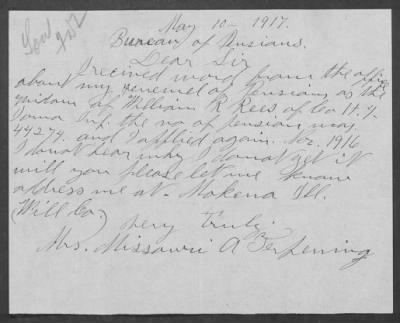 May 10 - 1917.
Bureau of Pensians.
Dear Sir
I recived word from the office
about my renemel of pensions as the
widow of William R Rees of Co H. 4.
Iowa Inf. the no of pension was
44274. and I applied again. Nov. 1916
I donot hear why I donot get it
will you please let me know
address me at - Mokena Ill.
(Will Co.)
very Truly.
Mrs. Missouri A Terpening